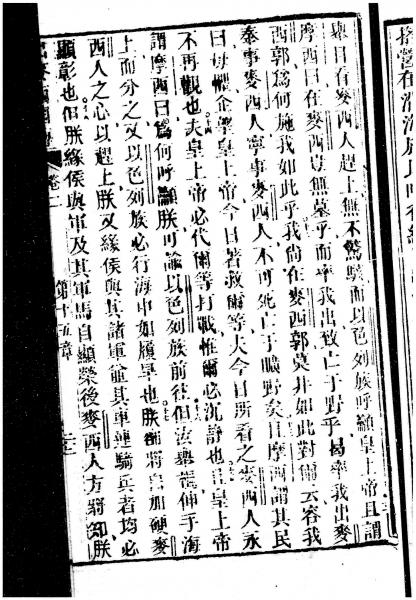 舉目看麥西人趕上無不驚駭而以色列族呼籲皇上帝且謂
摩西曰在麥西豈無墓乎而率我出致亡于野乎曷率我出麥
西郭為何施我如此乎我尚在麥西郭莫非如此對爾云容我
奉事麥西人寧事麥西人不可死亡于曠野矣且摩西謂其民
曰毋懼企望皇上帝今日若救爾等夫今日所看之麥西人永
不再觀也夫皇上帝必代爾等打戰惟爾必沉靜也且皇上帝
謂摩西曰為何呼籲朕可諭以色列族前往但汝舉龍伸手海
上而分之又以色列族必行海中如履旱也朕將自加硬麥
西人之心以趕上朕又緣侯與其諸軍並其車連騎兵者均必
顯彰也但朕緣侯與軍及其軍馬自顯榮後麥西人方將知朕
卷二
第十五章